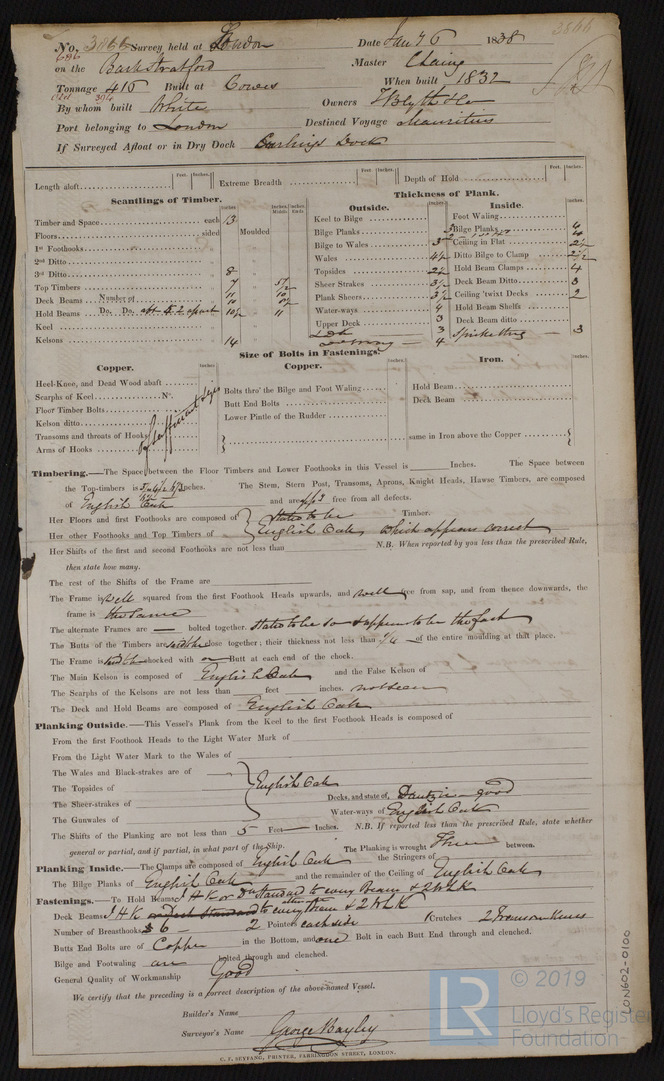 2866
No. 3866 Survey held at London Date Jany 6 1838
686
on the Bark Stratford Master Chaing
Tonnage 416 Built at Cowes When built 1832
Old 394
By whom built White Owners J Blyth & Co
Port belonging to London Destined Voyage Mauritius
If Surveyed Afloat or in Dry Dock Curlings Dock
Length aloft Feet. Inches. Extreme Breadth Feet. Inches. Depth of Hold Feet. Inches.
Scantlings of Timber. Thickness of Plank.
Outside. Inside.
Timber and Space each 13 Keel to Bilge Foot Waling
Floors sided Moulded Bilge Planks Bilge Planks
1st Foothooks Bilge to Wales 3 Ceiling in Flat 2½
2nd Ditto Wales 4½ Ditto Bilge to Clamp 2½
3rd Ditto 8 Topsides 2½ Hold Beam Clamps 4
Top Timbers 7 5½ Sheer Strakes 3½ Deck Beam Ditto 3
Deck Beams Number of Plank Sheers 3½ Ceiling 'twixt Decks 2
Hold Beams Do. Do. abt 5.2 apart 10½ 11 Water-ways 4 Hold Beam Shelfs
Keel Upper Deck 3 Deck Beam ditto
Kelsons 14 3 Spirketting 3
4
Size of Bolts in Fastenings.
Copper. Copper. Iron.
Heel-Knee, and Dead Wood abaft Bolts thro' the Bilge and Foot Waling Hold Beam
Scarphs of Keel No. Butt End Bolts Deck Beam
Floor Timber Bolts Lower Pintle of the Rudder
Kelson ditto
Transoms and throats of Hooks same in Iron above the Copper
Arms of Hooks
of sufficient size
Timbering.—The Space between the Floor Timbers and Lower Foothooks in this Vessel is Inches. The Space between
the Top-timbers is Inches. The Stem, Stern Post, Transoms, Aprons, Knight Heads, Hawse Timbers, are composed
of English Oak and are free from all defects.
Her Floors and first Foothooks are composed of stated to be Timber.
Her other Foothooks and Top Timbers of English Oak which appears correct
Her Shifts of the first and second Foothooks are not less than N.B. When reported by you less than the prescribed Rule,
then state how many.
The rest of the Shifts of the Frame are
The Frame is well squared from the first Footheck Heads upwards, and well free from sap, and from thence downwards, the
frame is the same
The alternate Frames are — bolted together. stated to be so & appears to be the fact
The Butts of the Timbers are close together; their thickness not less than ¼ of the entire moulding at that place.
The Frame is chocked with Butt at each end of the chock.
The Main Kelson is composed of English Oak and the False Kelson of
The Scarphs of the Kelsons are not less than feet inches. not seen
The Deck and Hold Beams are composed of English Oak
Planking Outside.—This Vessel's Plank from the Keel to the first Footheck Heads is composed of
From the first Footheck Heads to the Light Water Mark of
From the Light Water Mark to the Wales of
The Wales and Black-strakes are of
The Topsides of English Oak Decks, and state of, Dantzic — good
The Sheer-strakes of Water-ways of English Oak
The Gunwales of
The Shifts of the Planking are not less than 5 Feet — Inches. N.B. If reported less than the prescribed Rule, state whether
general or partial, and if partial, in what part of the Ship. The Planking is wrought Three between.
Planking Inside.—The Clamps are composed of English Oak the Stringers of
The Bilge Planks of English Oak and the remainder of the Ceiling of English Oak
Fastenings.—To Hold Beams I H K or Do Standard to every Beam & 2 W L K
Deck Beams I H K or Deck Standard to every Beam & 2 W L K
Number of Breasthooks 6 — 2 Pointers each side Crutches 2 Transom Knees
Butts End Bolts are of Copper in the Bottom, and one Bolt in each Butt End through and clenched.
Bilge and Footwaling are bolted through and clenched.
General Quality of Workmanship Good
We certify that the preceding is a correct description of the above-named Vessel.
Builder's Name
Surveyor's Name George Bayley
C. F. SEYFANG, PRINTER, FARRINGDON STREET, LONDON.
LON602-0100
LR © 2019
Lloyd's Register
Foundation